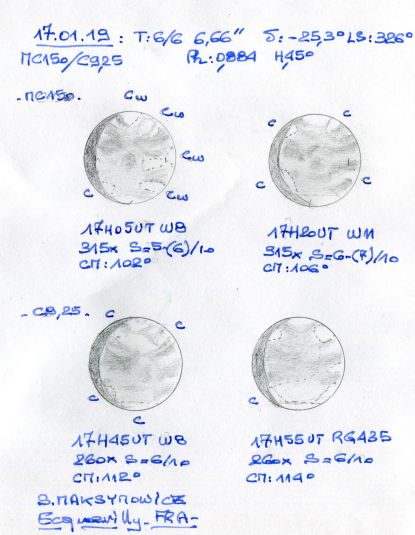 17.01.19 : T:6/6 6,66" δ:-25,3° LS:326°
MC150/C9,25 PL:0,884 H45°
- MC150 -
Cw
Cw
Cw
Cw
C
C
C
C
17H05UT W8
315x S=5-(6)/10
CM:102°
17H20UT W11
315x S=6-(7)/10
CM:106°
- C9,25 -
C
C
C
C
17H45UT W8
260x S=6/10
CM:112°
17H55UT RG435
260x S=6/10
CM:114°
S.MAKSYMOWICZ
Ecquevilly-FRA-